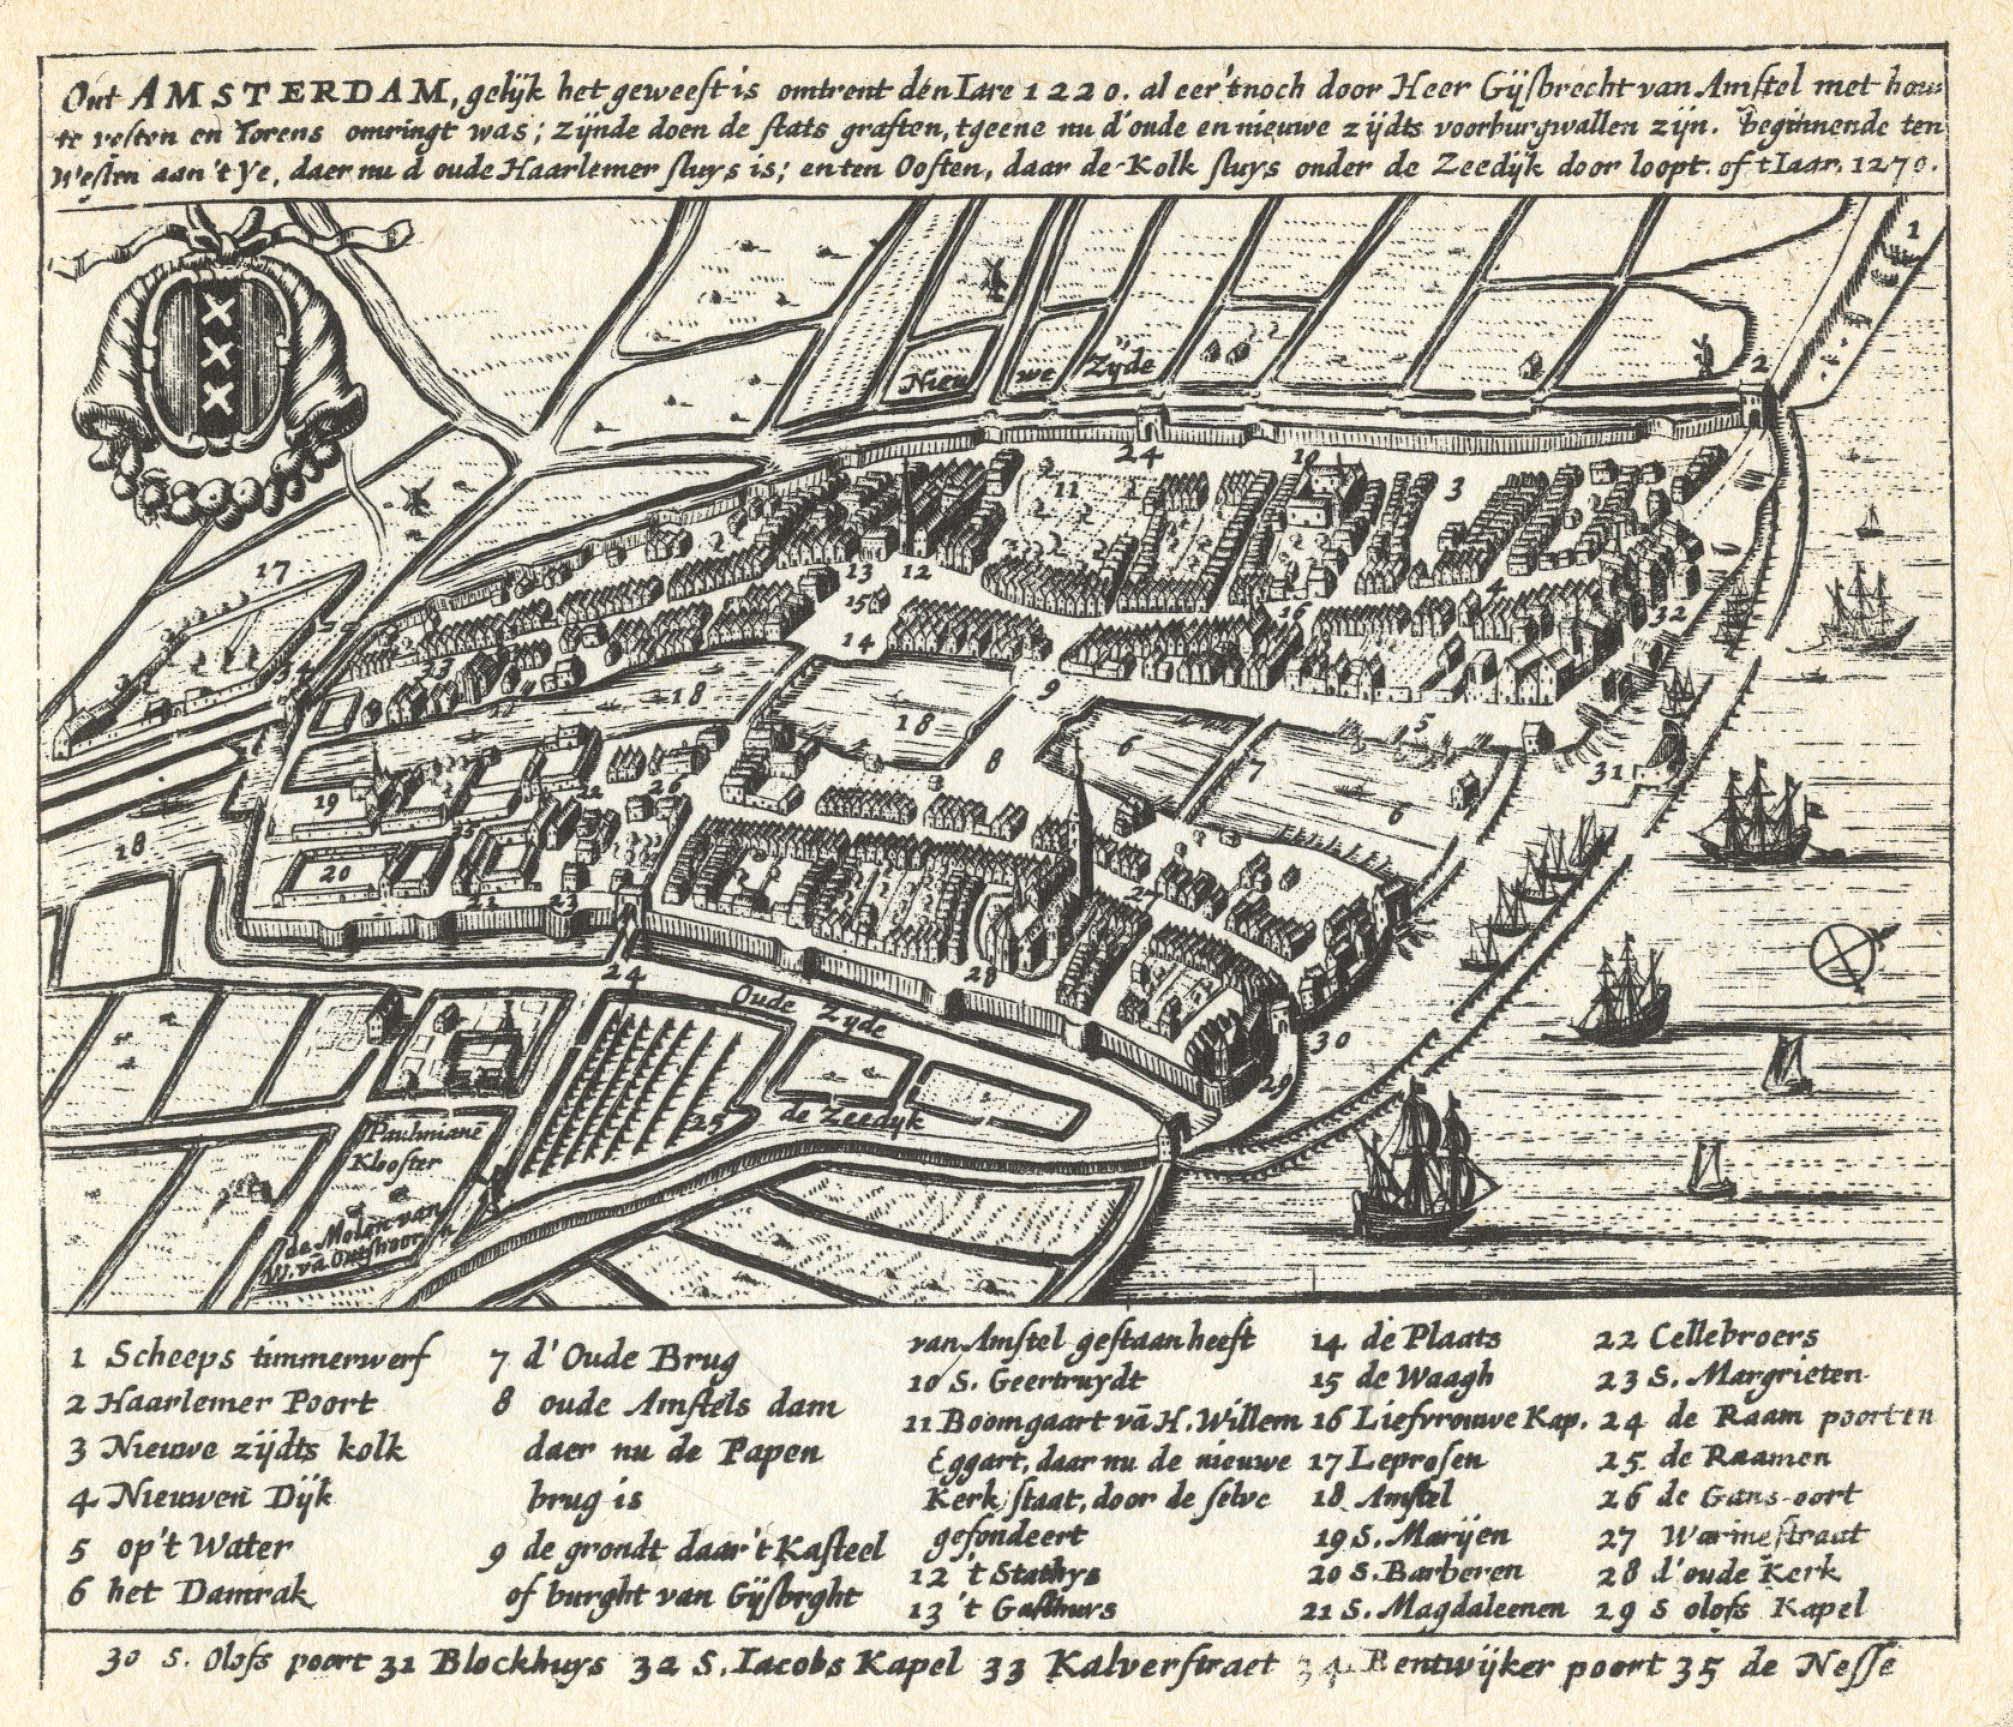 Out AMSTERDAM, gelÿk het geweest is omtrent den Iare 1220. al eer 't noch door Heer Gÿsbrecht van Amstel met hou-
te vesten en Torens omringt was; zÿnde doen de stats graften, tgeene nu d'oude en nieuwe zÿdts voorburgwallen zÿn. beginnende ten
Westen aan 't Ye, daer nu d oude Haarlemer sluys is; en ten Oosten, daar de Kolk sluys onder de Zeedÿk door loopt. of t Iaar. 1270.
1
2
Nieu we Zÿde
24
10
11
3
17
13
12
15
4
16
32
14
34
23
18
9
18
5
6
8
7
31
19
22
26
6
18
35
20
27
21
23
24
28
Oude Zyde
30
29
25
de Zeedyk
Paulinianē
Klooster
de Molen van
W. vā Outshoorn
1 Scheeps timmerwerf
2 Haarlemer Poort
3 Nieuwe zÿdts kolk
4 Nieuwen Dÿk
5 op't Water
6 het Damrak
7 d'Oude Brug
8 oude Amstels dam
daer nu de Papen
brug is
9 de grondt daar't Kasteel
of burght van Gÿsbrght
van Amstel gestaan heeft
10 S. Geertruydt
11 Boomgaart vā H. Willem
Eggart, daar nu de nieuwe
Kerk staat, door de selve
gefondeert
12 't Stathys
13 't Gasthurs
14 de Plaats
15 de Waagh
16 Liefvrouwe Kap.
17 Leprosen
18 Amstel
19 S. Marÿen
20 S. Barberen
21 S. Magdaleenen
22 Cellebroers
23 S. Margrieten
24 de Raam poorten
25 de Raamen
26 de Gans-oort
27 Warmestraat
28 d'oude Kerk
29 S olofs Kapel
30 S. Olofs poort 31 Blockhuys 32 S. Iacobs Kapel 33 Kalverstraet 34 Bentwÿker poort 35 de Nesse